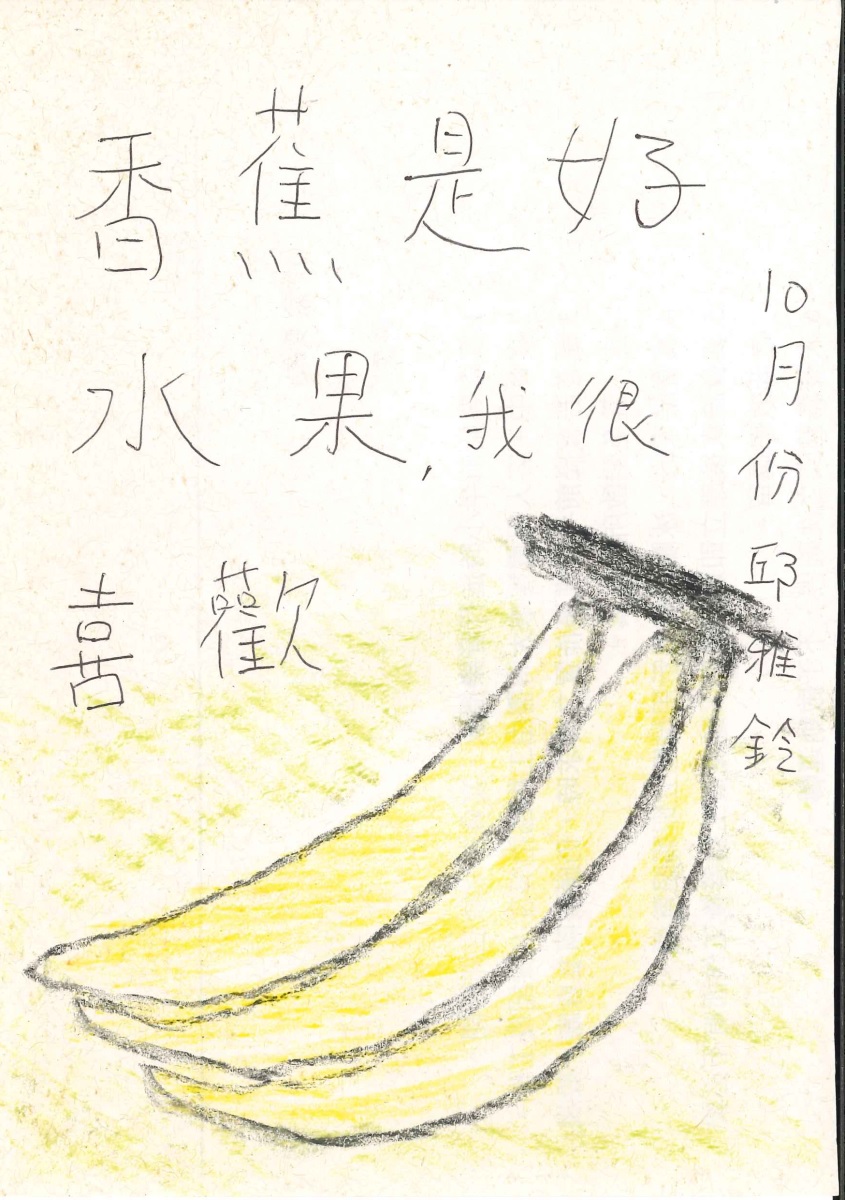 香蕉是好
水果,我很
喜歡
10月份邱雅鈴